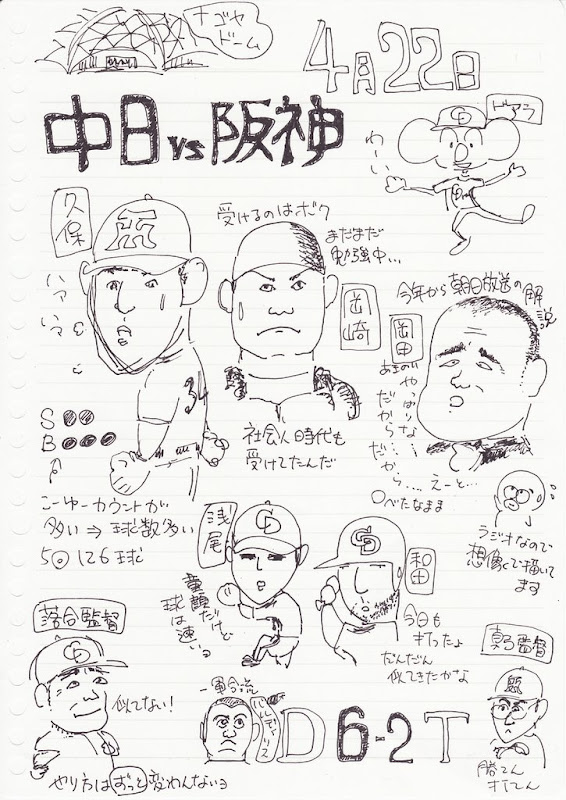 ナゴヤ
ドーム
4月22日
中日vs阪神
ドアラ
わーい
久保
ハァ
ハァ
受けるのはボク
まだまだ
勉強中…
岡崎
今年から朝日放送の解説
岡田
34
S
B
社会人時代も
受けてたんだ
だから…えーと…
こーゆーカウントが
多い⇒球数多い
5回126球
ラジオなので
想像で描いて
ます
浅尾
童顔だけど
球は速いヨ
和田
今日も
打ったよ
だんだん
似てきたかな
落合監督
似てない!
やり方はずっと変わんないヨ
一軍合流
D6-2T
真弓監督
勝てん
打てん